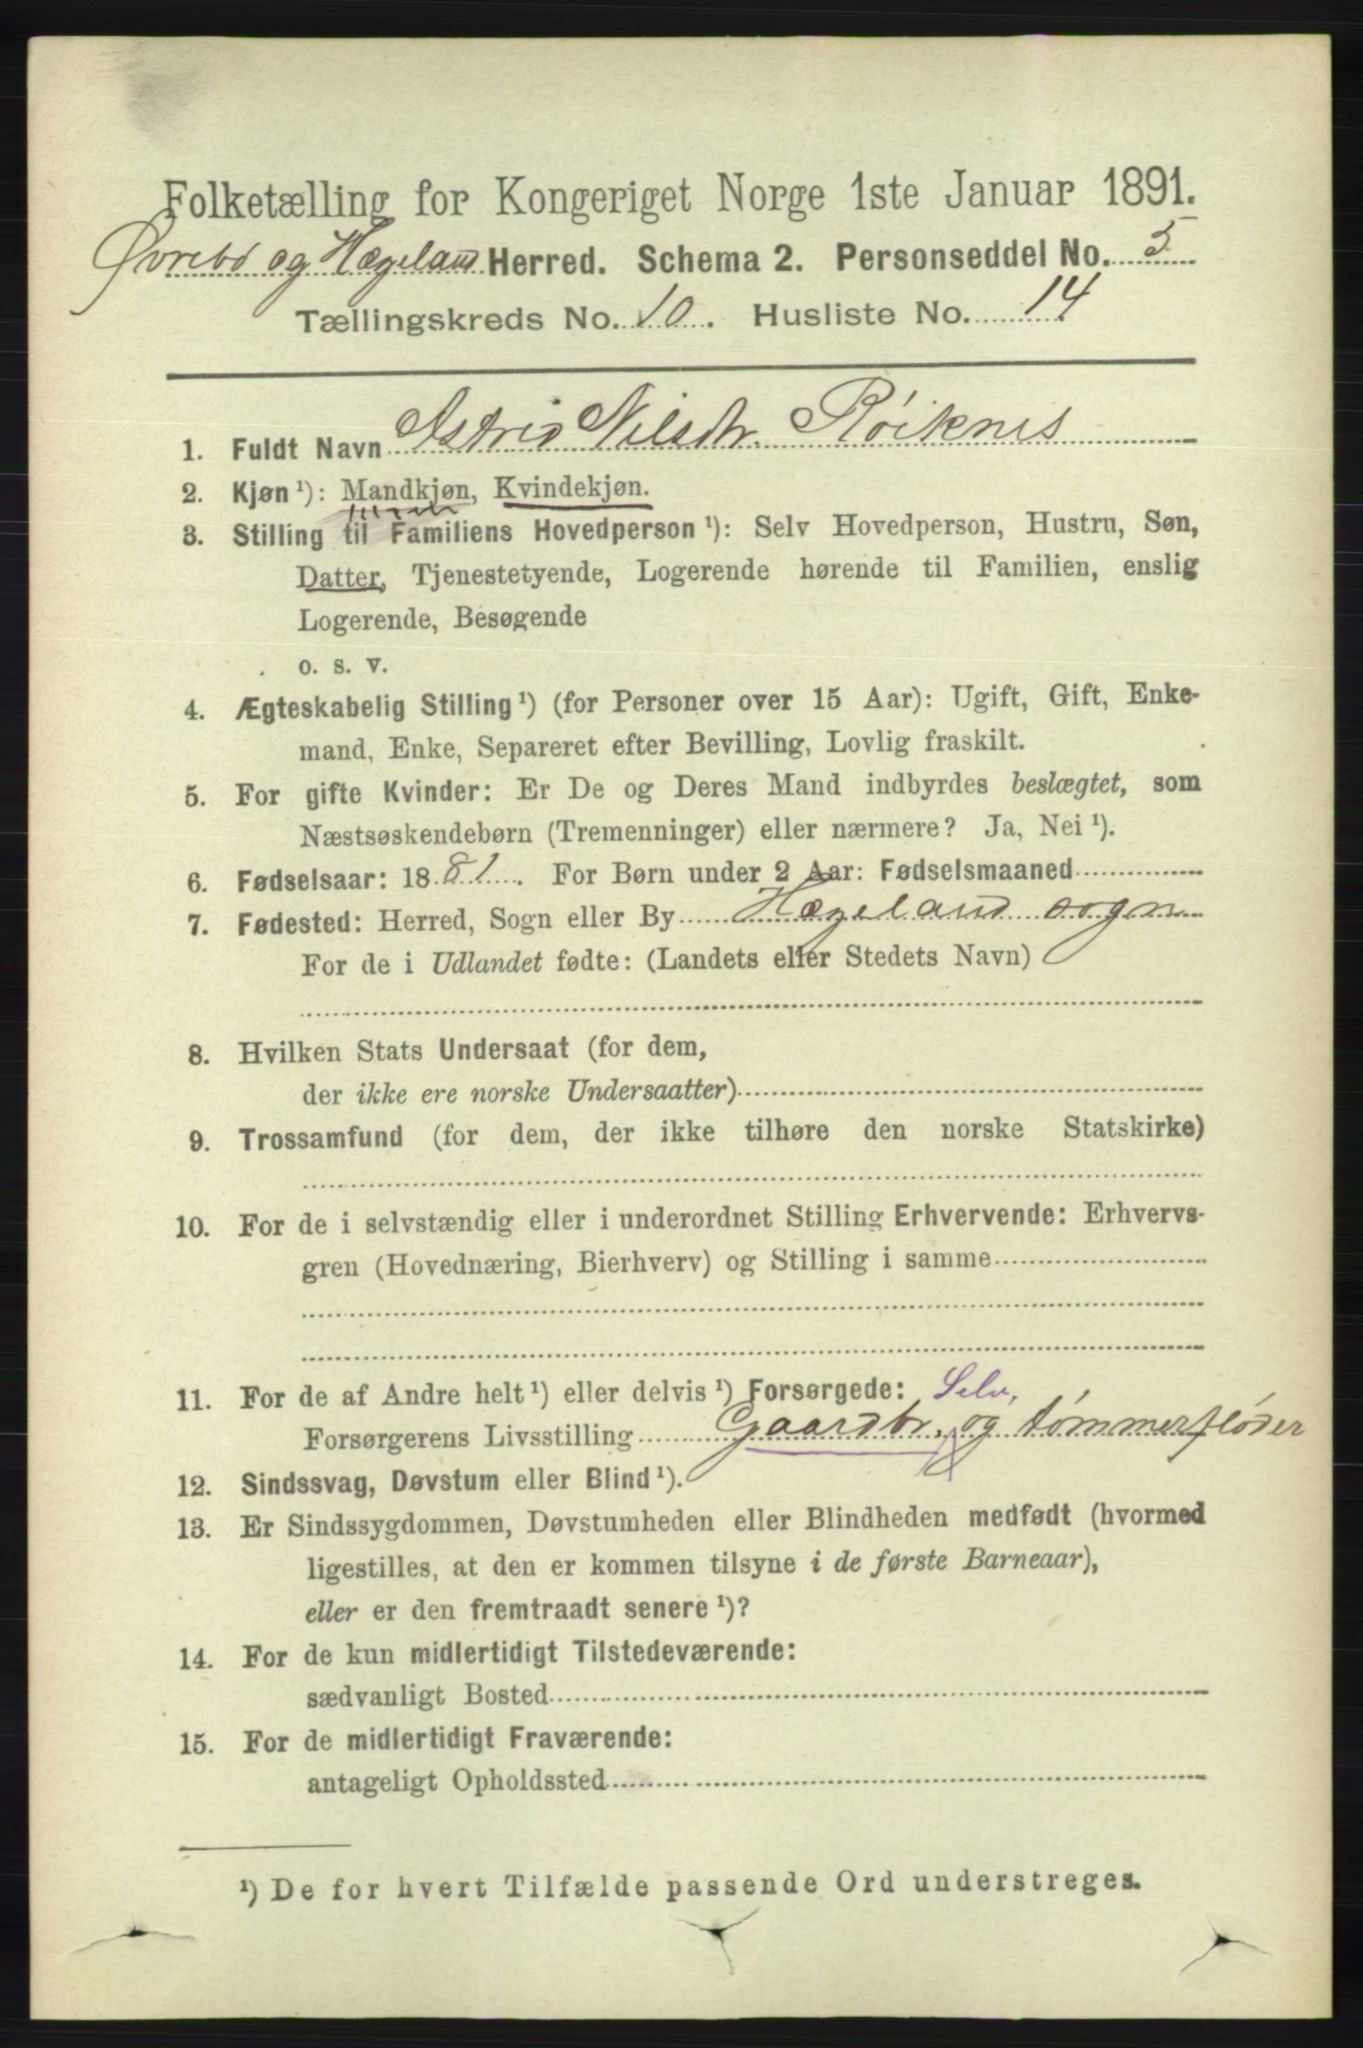 Folketælling for Kongeriget Norge 1ste Januar 1891.
Øvrebø og Hægeland Herred. Schema 2. Personseddel No. 5
Tællingskreds No. 10. Husliste No. 14
1. Fuldt Navn Astrid Nilsdtr. Røiknes
2. Kjøn ¹): Mandkjøn, Kvindekjøn.
3. Stilling til Familiens Hovedperson ¹): Selv Hovedperson, Hustru, Søn,
Datter, Tjenestetyende, Logerende hørende til Familien, enslig
Logerende, Besøgende
o. s. v.
4. Ægteskabelig Stilling ¹) (for Personer over 15 Aar): Ugift, Gift, Enke-
mand, Enke, Separeret efter Bevilling, Lovlig fraskilt.
5. For gifte Kvinder: Er De og Deres Mand indbyrdes beslægtet, som
Næstsøskendebørn (Tremenninger) eller nærmere? Ja, Nei ¹).
6. Fødselsaar: 1881. For Børn under 2 Aar: Fødselsmaaned
7. Fødested: Herred, Sogn eller By Hægeland sogn
For de i Udlandet fødte: (Landets eller Stedets Navn)
8. Hvilken Stats Undersaat (for dem,
der ikke ere norske Undersaatter)
9. Trossamfund (for dem, der ikke tilhøre den norske Statskirke)
10. For de i selvstændig eller i underordnet Stilling Erhvervende: Erhvervs-
gren (Hovednæring, Bierhverv) og Stilling i samme
11. For de af Andre helt ¹) eller delvis ¹) Forsørgede: Selv,
Forsørgerens Livsstilling Gaardbr. og tømmerfløder
12. Sindssvag, Døvstum eller Blind ¹).
13. Er Sindssygdommen, Døvstumheden eller Blindheden medfødt (hvormed
ligestilles, at den er kommen tilsyne i de første Barneaar),
eller er den fremtraadt senere ¹)?
14. For de kun midlertidigt Tilstedeværende:
sædvanligt Bosted
15. For de midlertidigt Fraværende:
antageligt Opholdssted
¹) De for hvert Tilfælde passende Ord understreges.